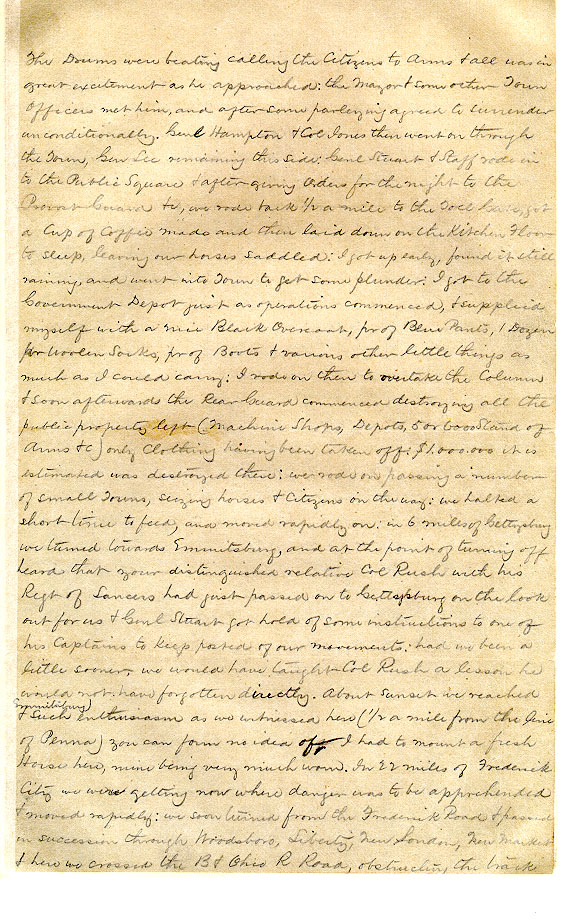 The Drums were beating calling the Citizens to Arms & all was in
great excitement as he approached: the Mayor & some other Town
Officers met him, and after some parleying agreed to surrender
unconditionally. Genl Hampton & Col Jones then went on through
the Town, Genl Lee remaining this side: Genl Stuart & Staff rode in
to the Public Square & after giving Orders for the night to the
Provost Guard &c, we rode back 1/2 a mile to the Toll Gate, got
a Cup of Coffee made and then laid down on the Kitchen Floor
to sleep, leaving our horses saddled: I got up early, found it still
raining, and went into Town to get some plunder: I got to the
Government Depot just as operations commenced, & supplied
myself with a nice Black Overcoat, pr of Blue Pants, 1 Dozen
pr Woolen Socks, pr of Boots & various other little things as
much as I could carry: I rode on then to overtake the Column
& soon afterwards the Rear Guard commenced destroying all the
public property left (Machine Shops, Depots, 5 or 6000 Stand of
Arms &c) only clothing having been taken off: $1.000.000 it is
estimated was destroyed there: we rode on passing a number
of small Towns, seizing horses & Citizens on the way: we halted a
short time to feed, and moved rapidly on: in 6 miles of Gettysburg
we turned towards Emmitsburg, and at the point of turning off
heard that your distinguished relative Col Rush with his
Regt of Lancers had just passed on to Gettysburg on the look
out for us & Genl Stuart got hold of some instructions to one of
his Captains to keep posted of our movements: had we been a
little sooner, we would have taught Col Rush a lesson he
would not have forgotten directly. About sunset we reached
Emmitsburg
& such enthusiasm as we witnessed here (1/2 a mile from the line
of Penna) you can form no idea of I had to mount a fresh
Horse here, mine being very much worn. In 22 miles of Frederick
City we were getting now where danger was to be apprehended
& moved rapidly: we soon turned from the Frederick Road & passed
in succession through Woodsboro, Liberty, New London, New Market
& here we crossed the B & Ohio R Road, obstructing the track